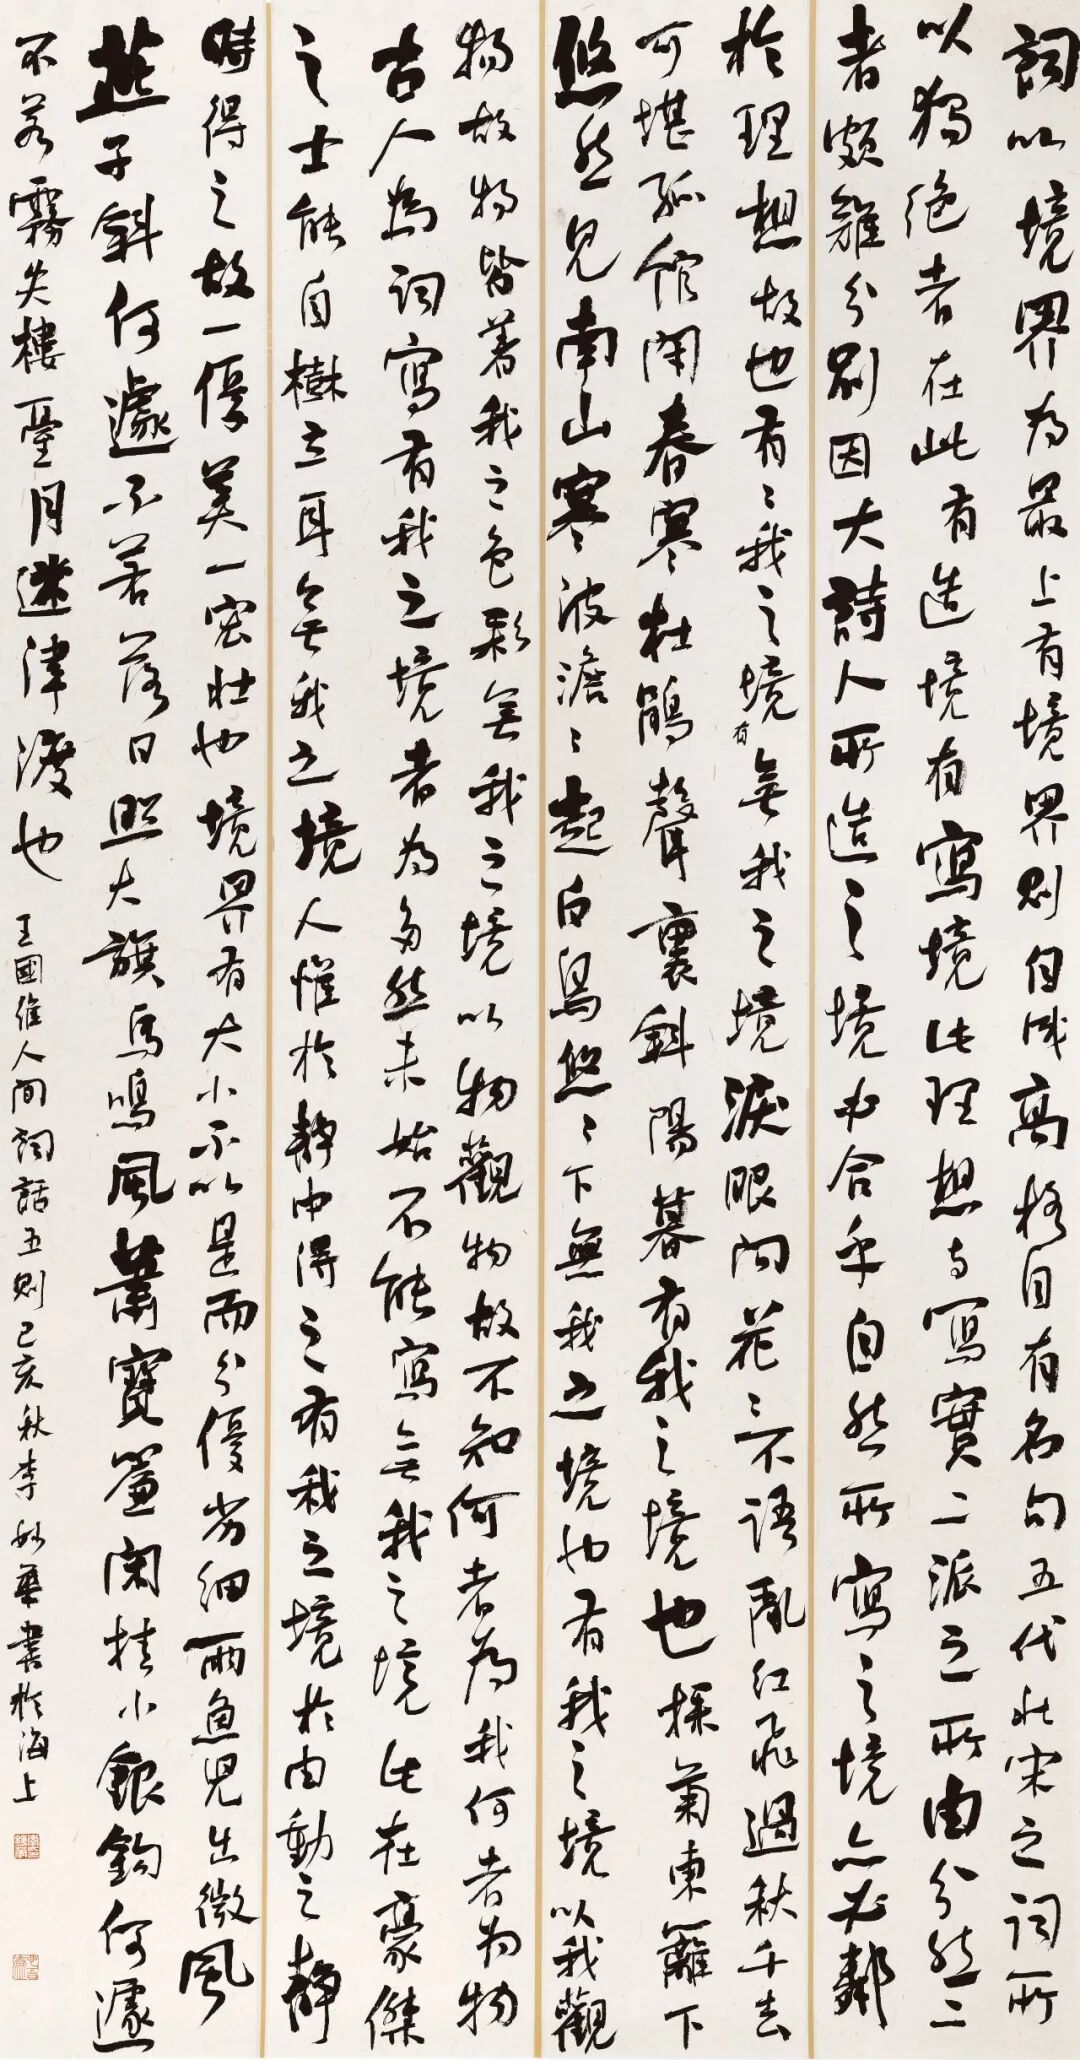 詞以境界為最上有境界則自成高格自有名句五代北宋之詞所
以獨絕者在此有造境有寫境此理想與寫實二派之所由分然二
者頗難分別因大詩人所造之境必合乎自然所寫之境亦必鄰
於理想故也有〻我之境有無我之境淚眼問花〻不語亂紅飛過秋千去
可堪孤館閉春寒杜鵑聲裏斜陽暮有我之境也採菊東籬下
悠然見南山寒波澹〻起白鳥悠〻下無我之境也有我之境以我觀
物故物皆著我之色彩無我之境以物觀物故不知何者為我何者為物
古人為詞寫有我之境者為多然未始不能寫無我之境此在豪傑
之士能自樹立耳無我之境人惟於靜中得之有我之境於由動之靜
時得之故一優美一宏壯也境界有大小不以是而分優劣細雨魚兒出微風
燕子斜何遽不若落日照大旗馬鳴風蕭蕭寶簾閑掛小銀鉤何遽
不若霧失樓臺月迷津渡也
王國維人間詞話五則己亥秋李 華書於海上